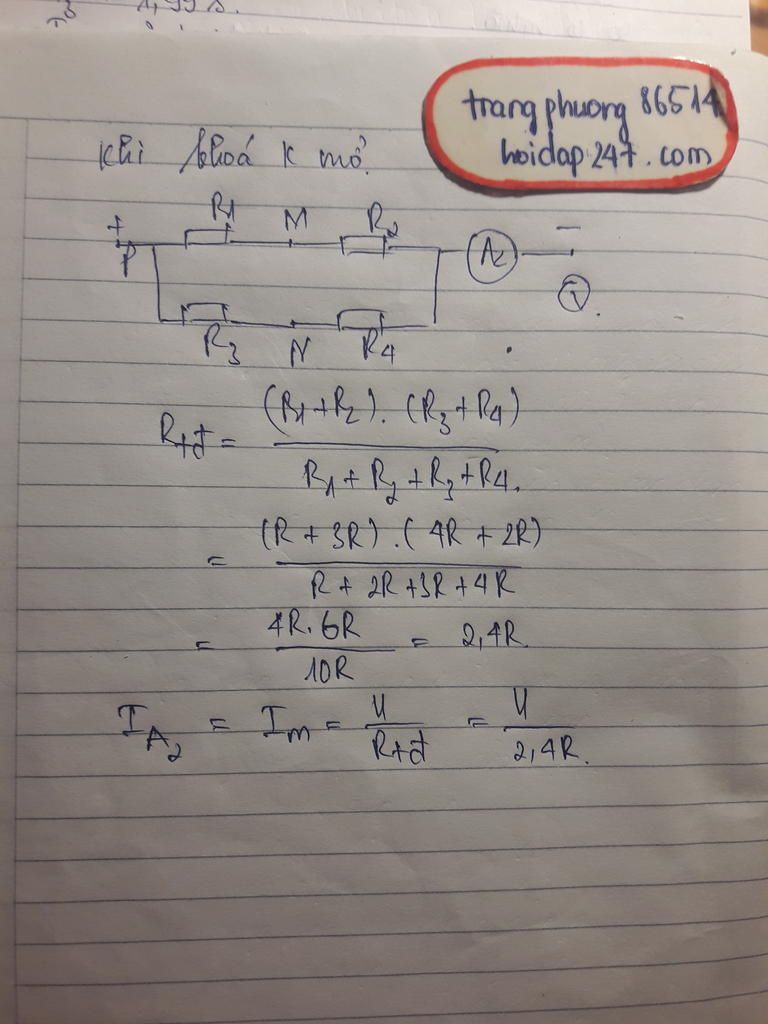 trangphuong 86514
hoidap247.com
Khi khoá K mở.
+ P R1 M R2 A2 - Q
R3 N R4
Rtđ = (R1+R2).(R3+R4) / R1+R2+R3+R4.
= (R+3R).(4R+2R) / R+2R+3R+4R
= 4R.6R / 10R = 2,4R
IA2 = Im = U / Rtđ = U / 2,4R.